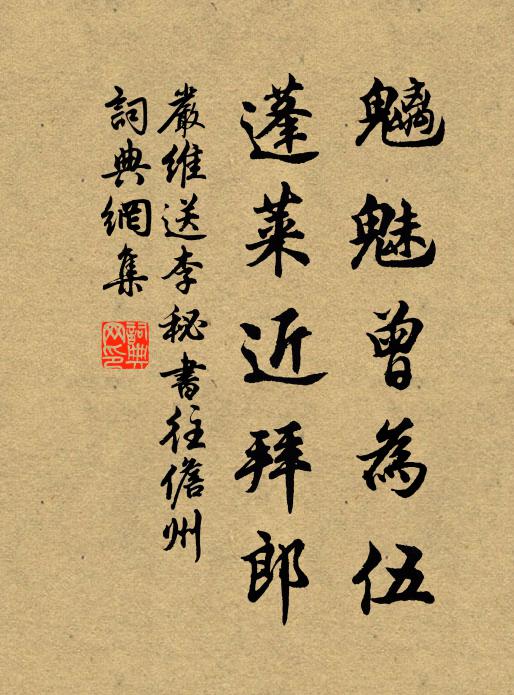 魑魅曾為伍
蓬萊近拜郎
嚴維送李秘書往儋州
詞典網集
詞典網印